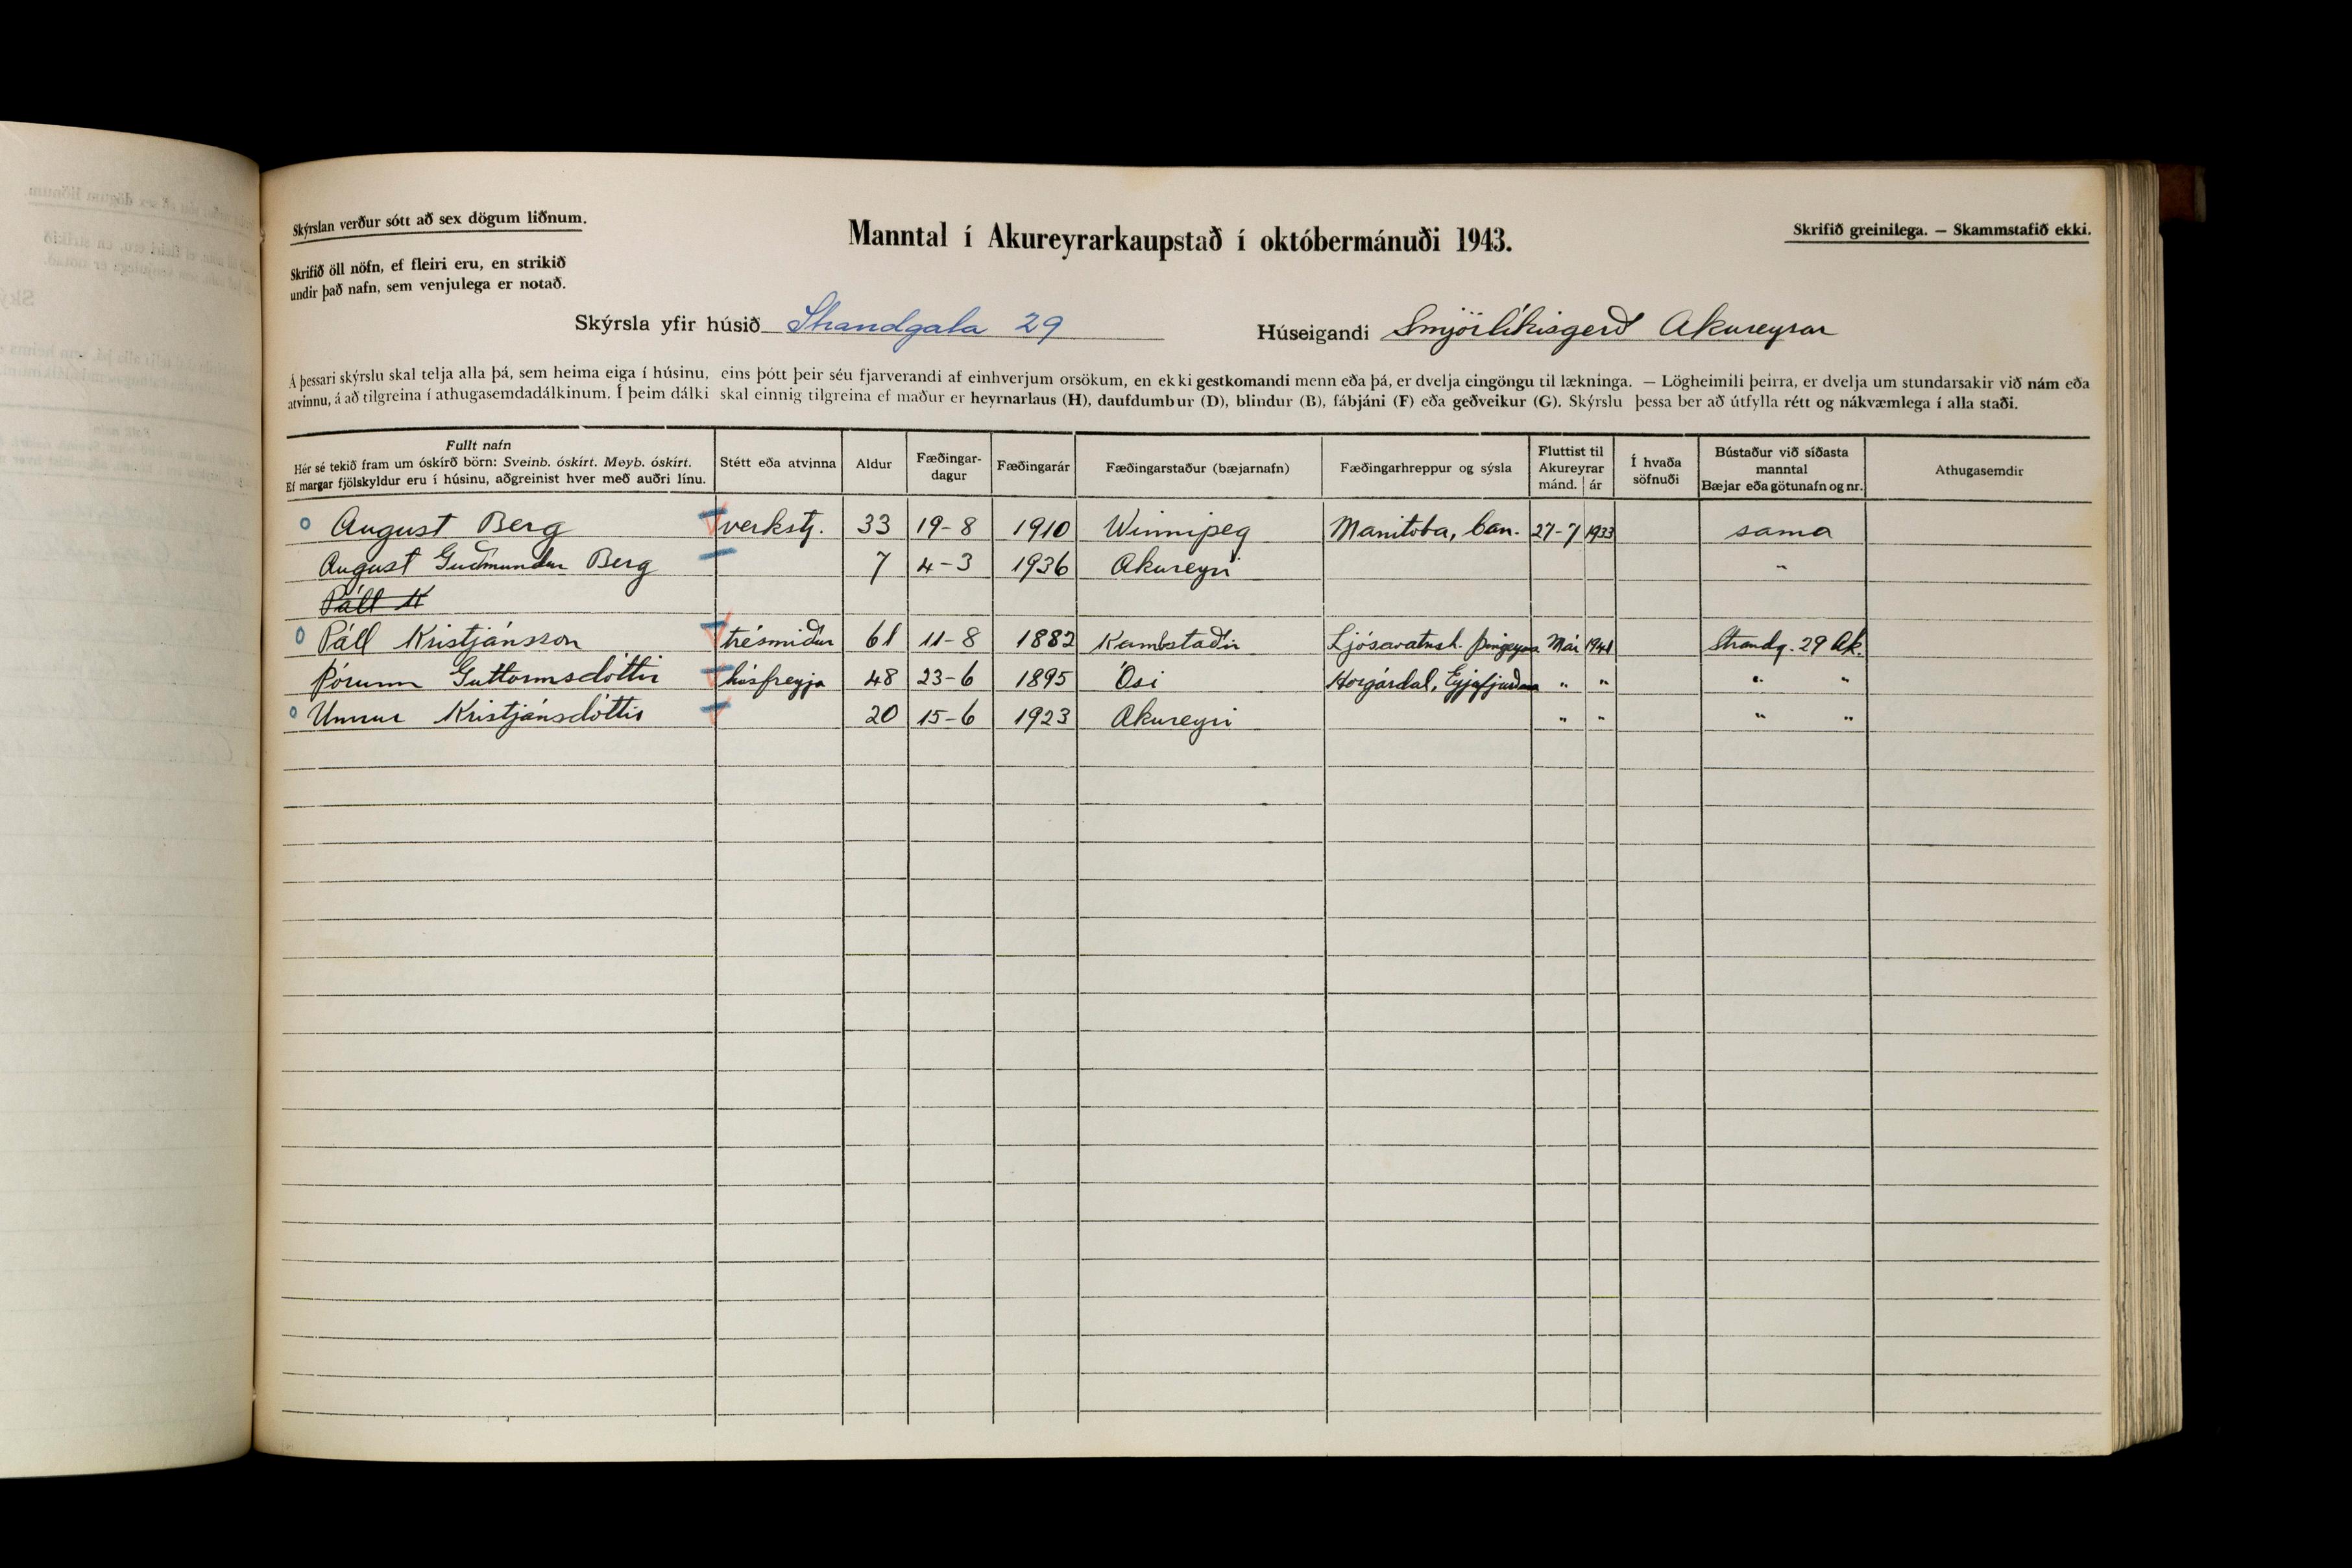 Skýrslan verður sótt að sex dögum liðnum.
Manntal í Akureyrarkaupstað í októbermánuði 1943.
Skrifið greinilega. — Skammstafið ekki.
Skrifið öll nöfn, ef fleiri eru, en strikið
undir það nafn, sem venjulega er notað.
Skýrsla yfir húsið Strandgata 29
Húseigandi Smjörlíkisgerð Akureyrar
Á þessari skýrslu skal telja alla þá, sem heima eiga í húsinu, eins þótt þeir séu fjarverandi af einhverjum orsökum, en ekki gestkomandi menn eða þá, er dvelja eingöngu til lækninga. — Lögheimili þeirra, er dvelja um stundarsakir við nám eða
atvinnu, á að tilgreina í athugasemdadálkinum. Í þeim dálki skal einnig tilgreina ef maður er heyrnarlaus (H), daufdumbur (D), blindur (B), fábjáni (F) eða geðveikur (G). Skýrslu þessa ber að útfylla rétt og nákvæmlega í alla staði.
Fullt nafn
Hér sé tekið fram um óskírð börn: Sveinb. óskírt. Meyb. óskírt.
Ef margar fjölskyldur eru í húsinu, aðgreinist hver með auðri línu.
Stétt eða atvinna
Aldur
Fæðingar-
dagur
Fæðingarár
Fæðingarstaður (bæjarnafn)
Fæðingarhreppur og sýsla
Fluttist til
Akureyrar
mánd. ár
Í hvaða
söfnuði
Bústaður við síðasta
manntal
Bæjar eða götunafn og nr.
Athugasemdir
August Berg verkstj. 33 19-8 1910 Winnipeg Manitoba, Can. 27-7 1933 sama
August Guðmundur Berg 7 4-3 1936 Akureyri "
Páll K
Páll Kristjánsson trésmiður 61 11-8 1882 Kambstaðir Ljósavatnsh. Þingeyjars. Maí 1941 Strandg. 29 Ak.
Þórunn Guttormsdóttir húsfreyja 48 23-6 1895 Ósi Hörgárdal, Eyjafjarðar " " " "
Unnur Kristjánsdóttir 20 15-6 1923 Akureyri " " " "